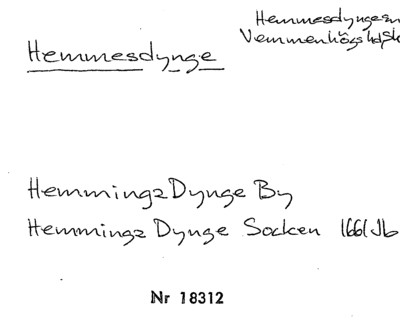 Hemmesdynge sn
Vemmenhögs hd, Sk
Hemmesdynge
Hemminga Dynge By
Hemminga Dynge Socken 1661 Jb
Nr 18312